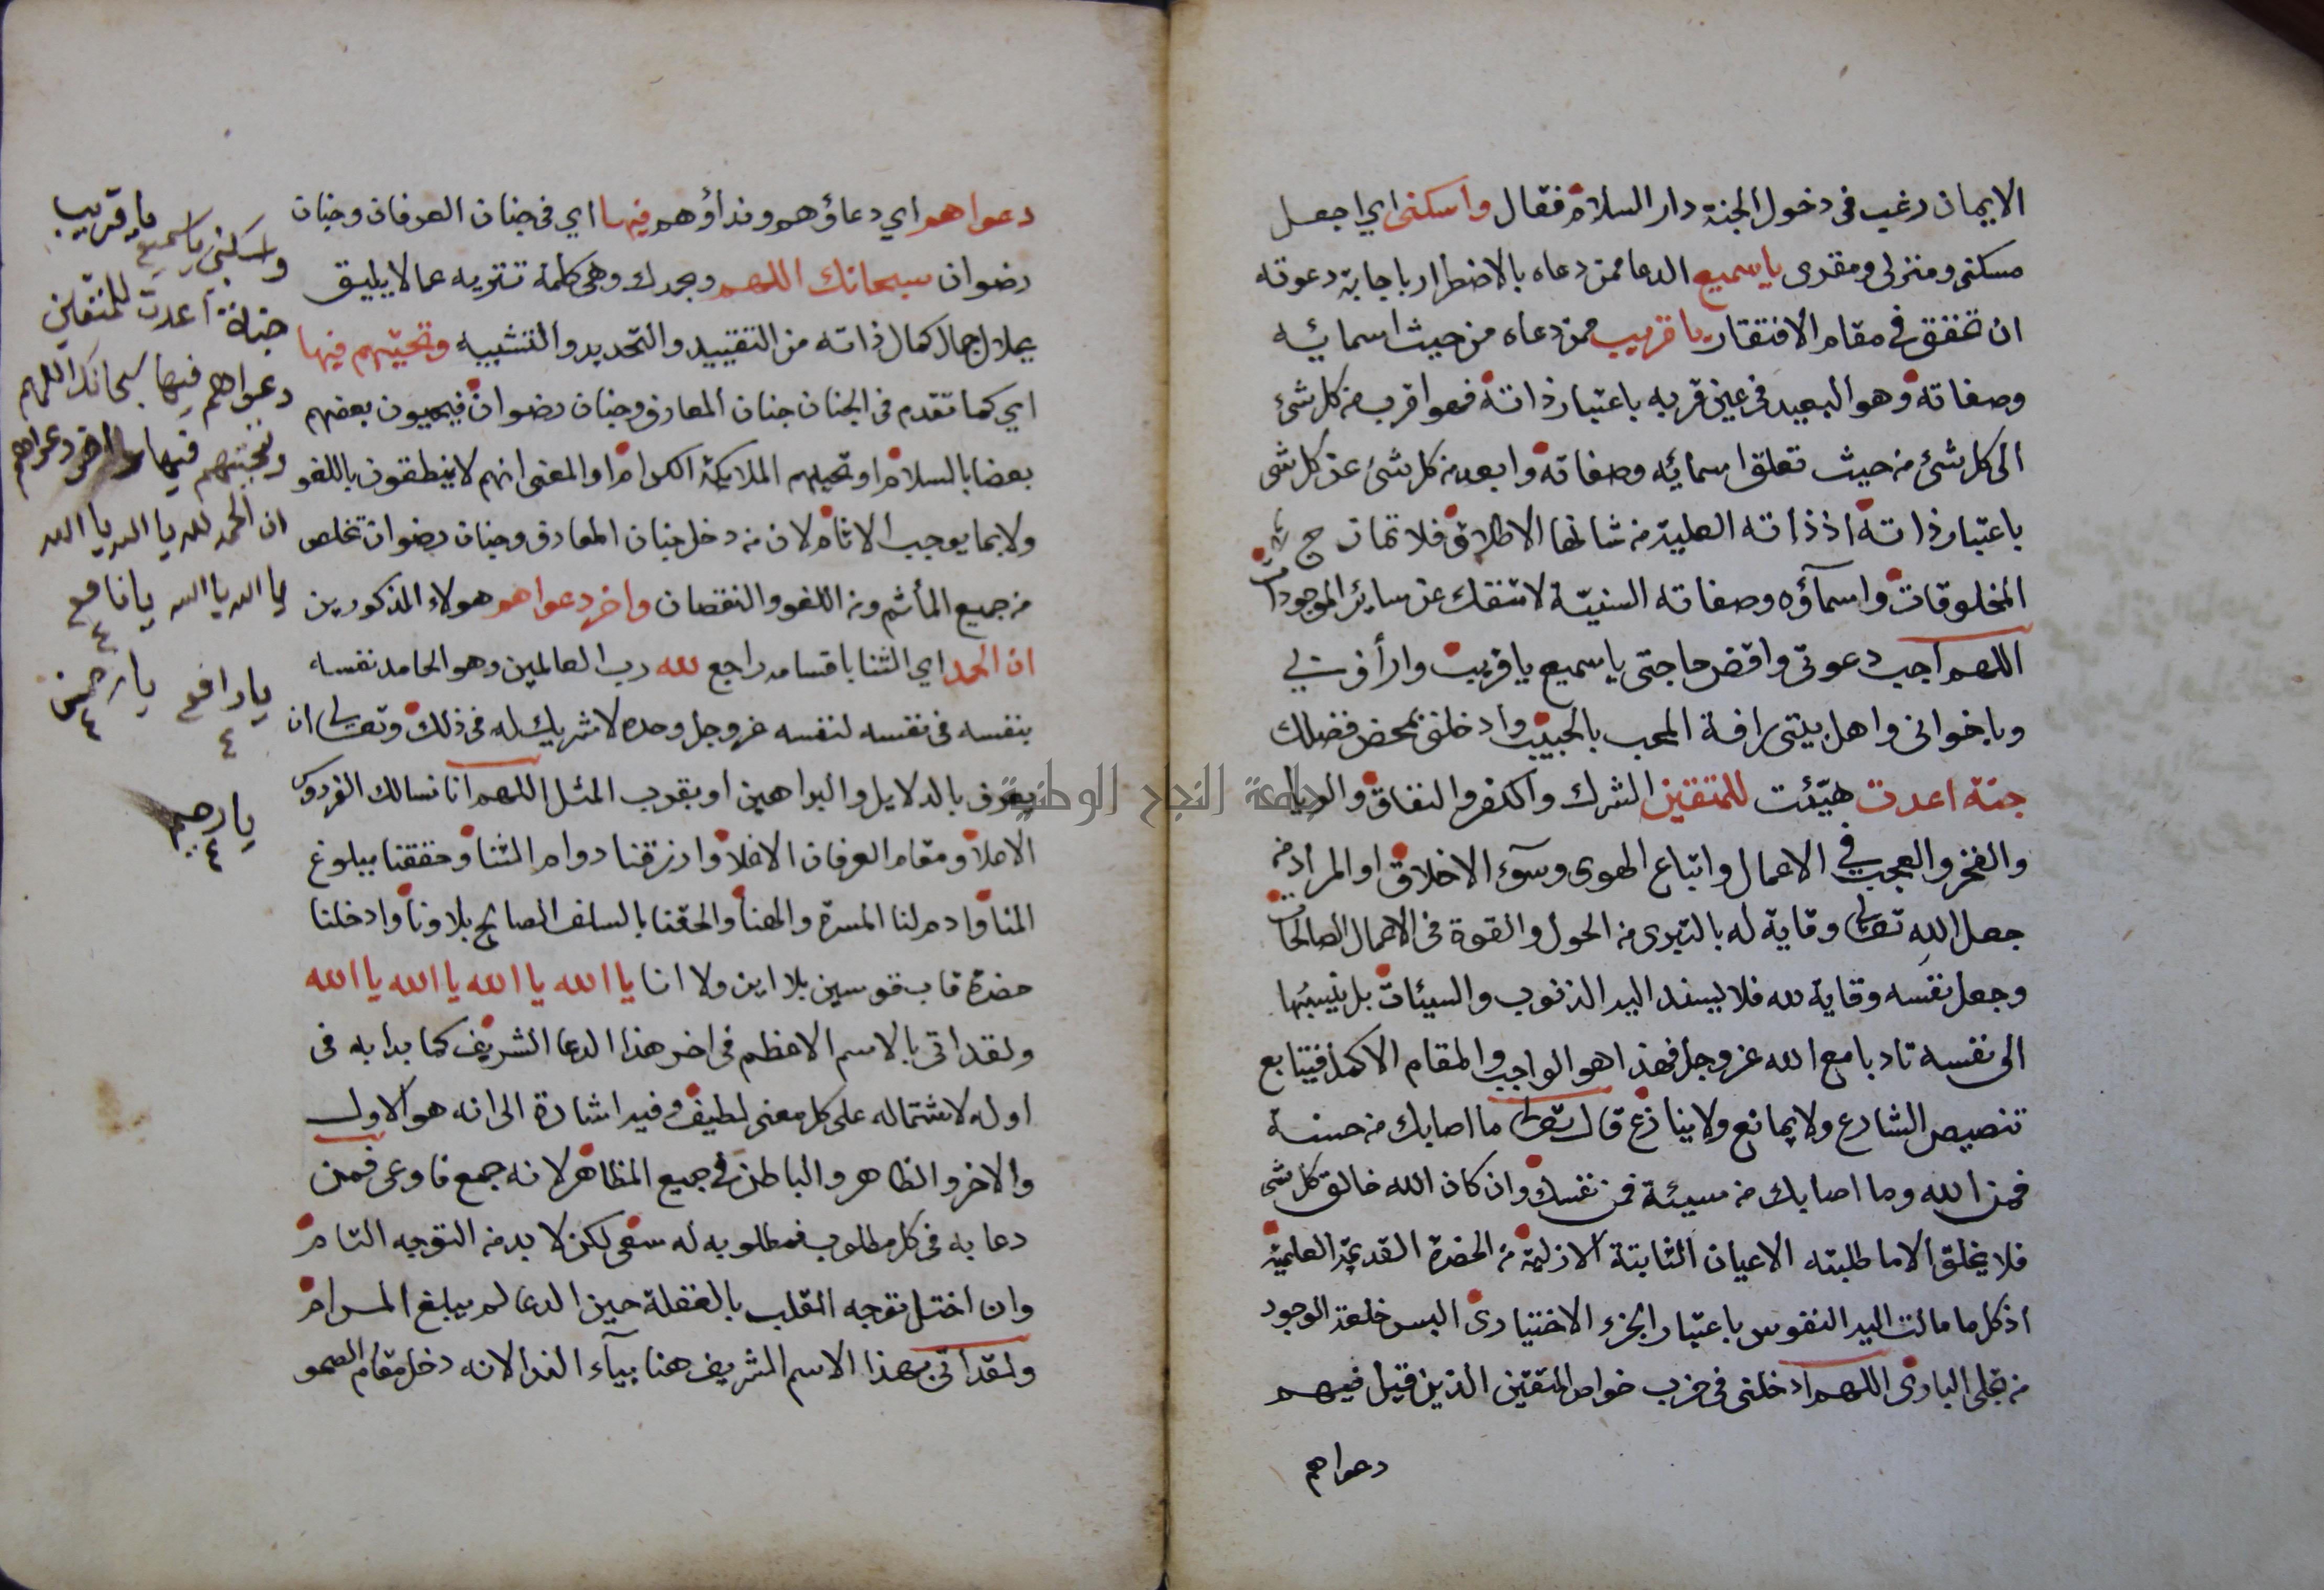 الايمان رغب في دخول الجنة دار السلام فقال واسكني اي اجعل
مسكني ومنزلي ومقري يا سميع الدعا ممن دعاه بالاضطرار باجابة دعوته
ان تحقق في مقام الافتقار يا قريب ممن دعاه من حيث اسمائه
وصفاته وهو البعيد في عين قربه باعتبار ذاته فهو اقرب من كل شئ
الى كل شئ من حيث تعلق اسمائه وصفاته وابعد من كل شئ عن كل شئ
باعتبار ذاته اذ ذاته العلية من شانها الاطلاق فلا تمازج
المخلوقات واسماؤه وصفاته السنية لا تنفك عن ساير الموجودات
اللهم اجب دعوتي واقض حاجتي يا سميع يا قريب وارأف بي
وباخواني واهل بيتي رافة المحب بالحبيب وادخلني بمحض فضلك
جنة اعدت هيئت للمتقين الشرك والكفر والنفاق والريا
والفخر والعجب في الاعمال واتباع الهوى وسوء الاخلاق او المراد من
جعل الله تعالى وقاية له بالتبري من الحول والقوة في الاعمال الصالحات
وجعل نفسه وقاية لله فلا يسند اليه الذنوب والسيئات بل ينسبها
الى نفسه تادبا مع الله عز وجل فهذا هو الواجب والمقام الاكمل فيتابع
تنصيص الشارع ولا يمانع ولا ينازع قال تعالى ما اصابك من حسنة
فمن الله وما اصابك من سيئة فمن نفسك وان كان الله خالق كل شئ
فلا يخلق الا ما طلبته الاعيان الثابتة الازلية من الحضرة القديمة العلمية
اذ كل ما مالت اليه النفوس باعتبار الجزء الاختياري البس خلعة الوجود
من تجلي الباري اللهم ادخلني في حزب خواص المتقين الذين قيل فيهم
دعواهم
دعواهم اي دعاؤهم ونداؤهم فيها اي في جنان العرفان وجنان
رضوان سبحانك اللهم وبحمدك وهي كلمة تنزيه عما لا يليق
بجلال جمال كمال ذاته من التقييد والتحديد والتشبيه وتحيتهم فيها
اي كما تقدم في الجنان جنان المعارف وجنان رضوان فيحيون بعضهم
بعضا بالسلام او تحييهم الملايكة الكرام او المعنى انهم لا ينطقون باللغو
ولا بما يوجب الاثام لان من دخل جنان المعارف وجنان رضوان تخلص
من جميع المأثم ومن اللغو والنقصان واخر دعواهم هولاء المذكورين
ان الحمد اي الثنا باقسامه راجع لله رب العالمين وهو الحامد نفسه
بنفسه في نفسه لنفسه عز وجل وحده لا شريك له في ذلك وتعالى ان
يعرف بالدلايل والبراهين او بقرب المثل اللهم انا نسالك الفردوس
الاعلا ومقام العرفان الاغلا وارزقنا دوام الثنا وحققنا ببلوغ
المنا وادم لنا المسرة والهنأ والحقنا بالسلف الصالح بلا ونا وادخلنا
حضرة قاب قوسين بلا اين ولا انا يا الله يا الله يا الله يا الله
ولقد اتى بالاسم الاعظم في اخر هذا الدعا الشريف كما بدا به في
اوله لاشتماله على كل معنى لطيف وفيه اشارة الى انه هو الاول
والاخر والظاهر والباطن في جميع المظاهر لانه جمع فاوعى فمن
دعا به في كل مطلوب فمطلوبه له سعى لكن لا بد من التوجه التام
وان اختل توجه القلب بالغفلة حين الدعا لم يبلغ المرام
ولقد اتى بهذا الاسم الشريف هنا بياء الندا لانه دخل مقام الصحو
يا قريب
واسكني يا سميع
جنة اعدت للمتقين
دعواهم فيها سبحانك اللهم
وتحيتهم فيها واخر دعواهم
ان الحمد لله يا الله يا الله
يا الله يا الله يا نافع
٤
يا رافع يا رحمن
٤ ٤
يا رحيم
٤
جامعة النجاح الوطنية